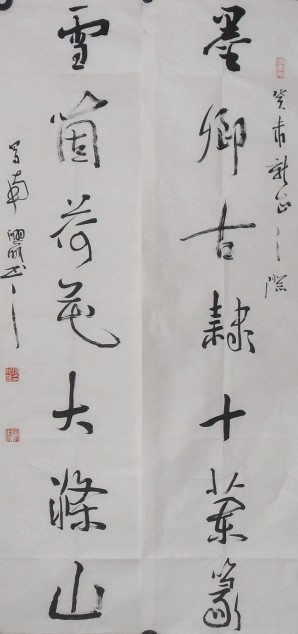 癸未新正之際
墨卿古隸十蘭篆
雪箇荷花大滌山
南